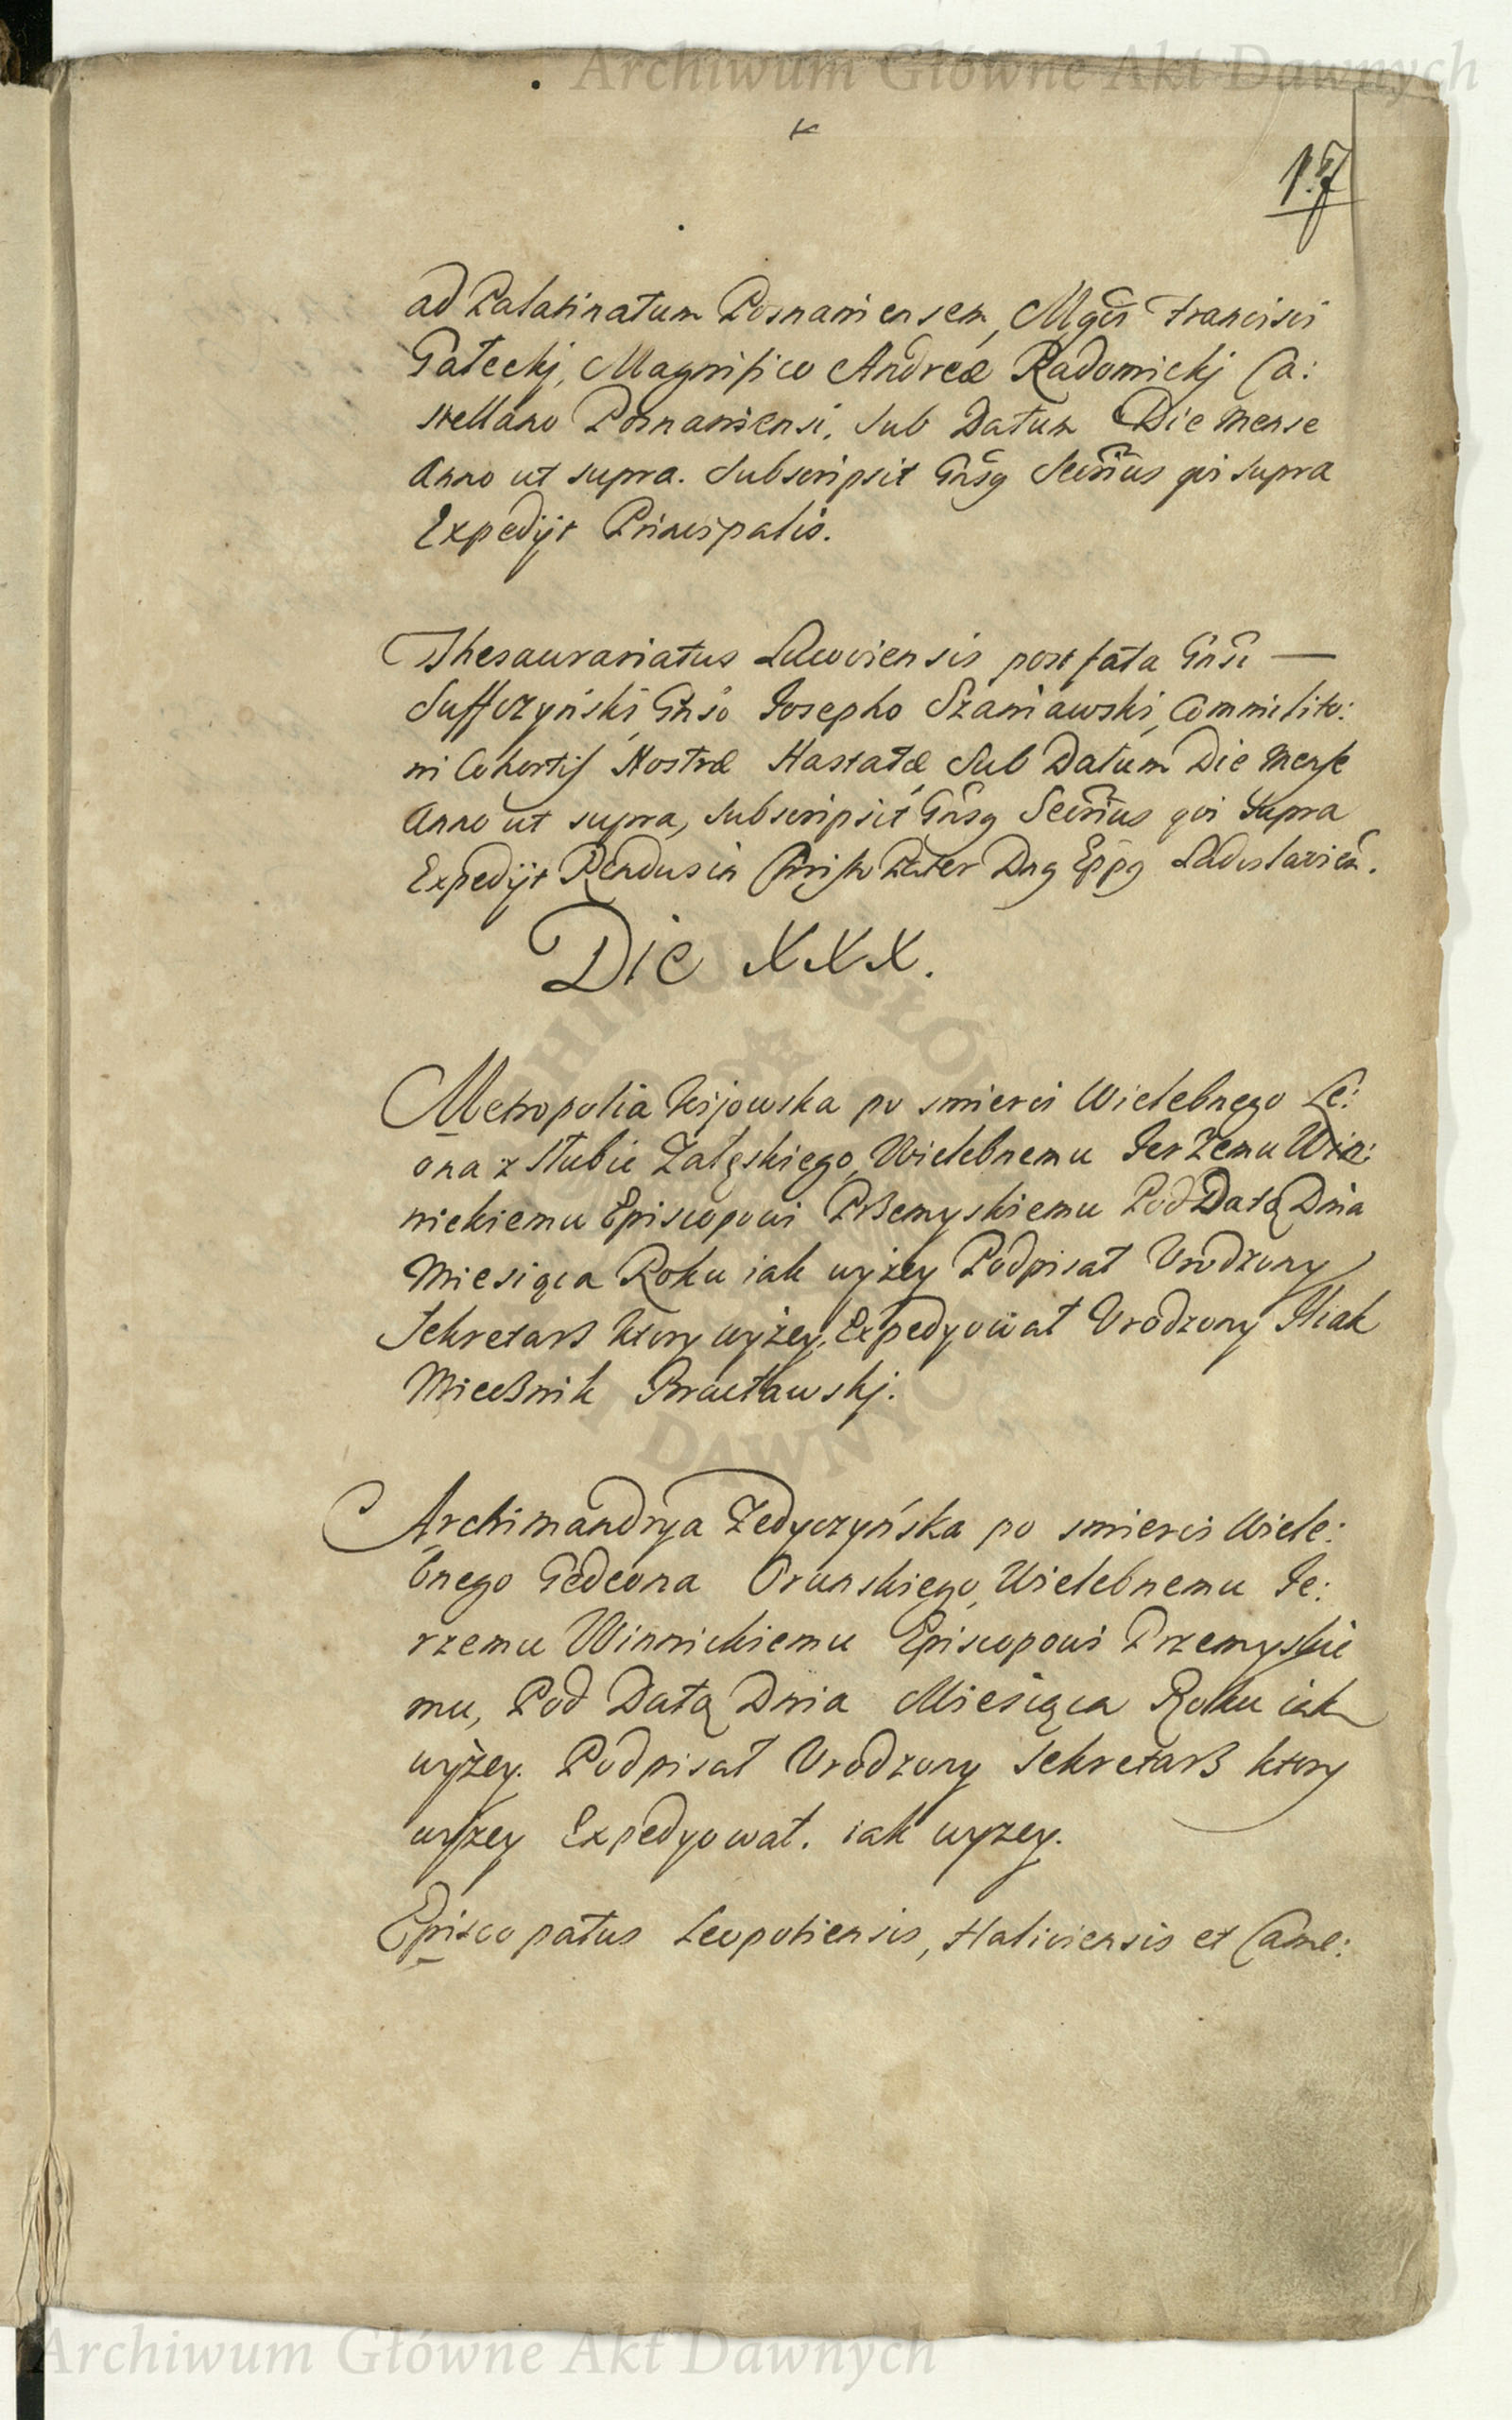 Archiwum Główne Akt Dawnych
17
ad Palatinatum Posnaniensem, Mgci Francisci
Gałeckj, Magnifico Andreæ Radomickj Ca:
stellano Posnaniensi, Sub Datum Die Mense
Anno ut supra. Subscripsit Gnsg Secrius qui supra
Expedijt Principalis.
Thesaurariatus Lucoviensis post fata Gnsi —
Suffczyński, Gnso Josepho Szaniawski, Commilito:
ni Cohortis Nostræ Hastatæ, Sub Datum Die Mense
Anno ut supra, Subscripsit Gnsg Secrius qui supra
Expedijt Rendus in Christo Pater Dng Eppg Ladislavien.
Die XXX.
Metropolia Kijowska po smierci Wielebnego Le:
ona z Slubic Załęskiego, Wielebnemu Jerzemu Win:
nickiemu Episcopowi Pßemyskiemu Pod Datą Dnia
Miesiąca Roku iak wyżey Podpisał Vrodzony
Sekretarß ktory wyżey, Expedyował Vrodzony Iliak
Miecßnik Bracławskj.
Archimandrya Żedyczyńska po smierci Wiele:
bnego Gedeona Oranskiego, Wielebnemu Je:
rzemu Winnickiemu Episcopowi Przemyskie
mu, Pod Datą Dnia Miesiąca Roku iak
wyżey. Podpisał Vrodzony Sekretarß ktory
wyżey Expedyował. iak wyzey.
Episcopatus Leopoliensis, Haliciensis et Came:
Archiwum Główne Akt Dawnych